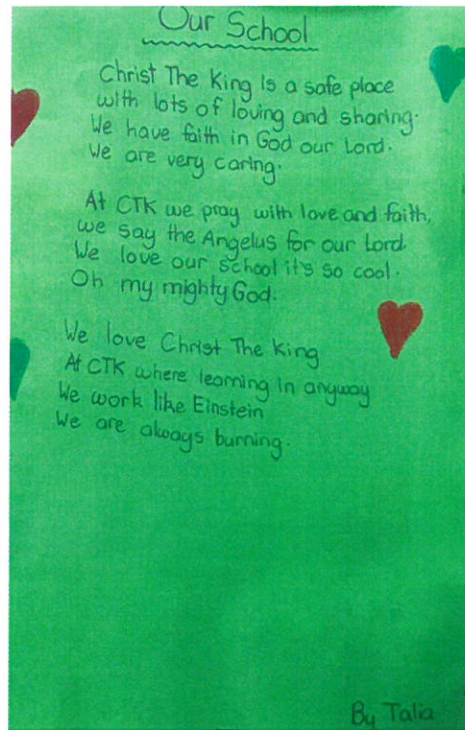 Our School
Christ The King is a safe place
with lots of loving and sharing.
We have faith in God our Lord.
We are very caring.
At CTK we pray with love and faith,
we say the Angelus for our Lord.
We love our school it's so cool.
Oh my mighty God.
We love Christ The King
At CTK where learning in anyway
We work like Einstein
We are always burning.
By Talia